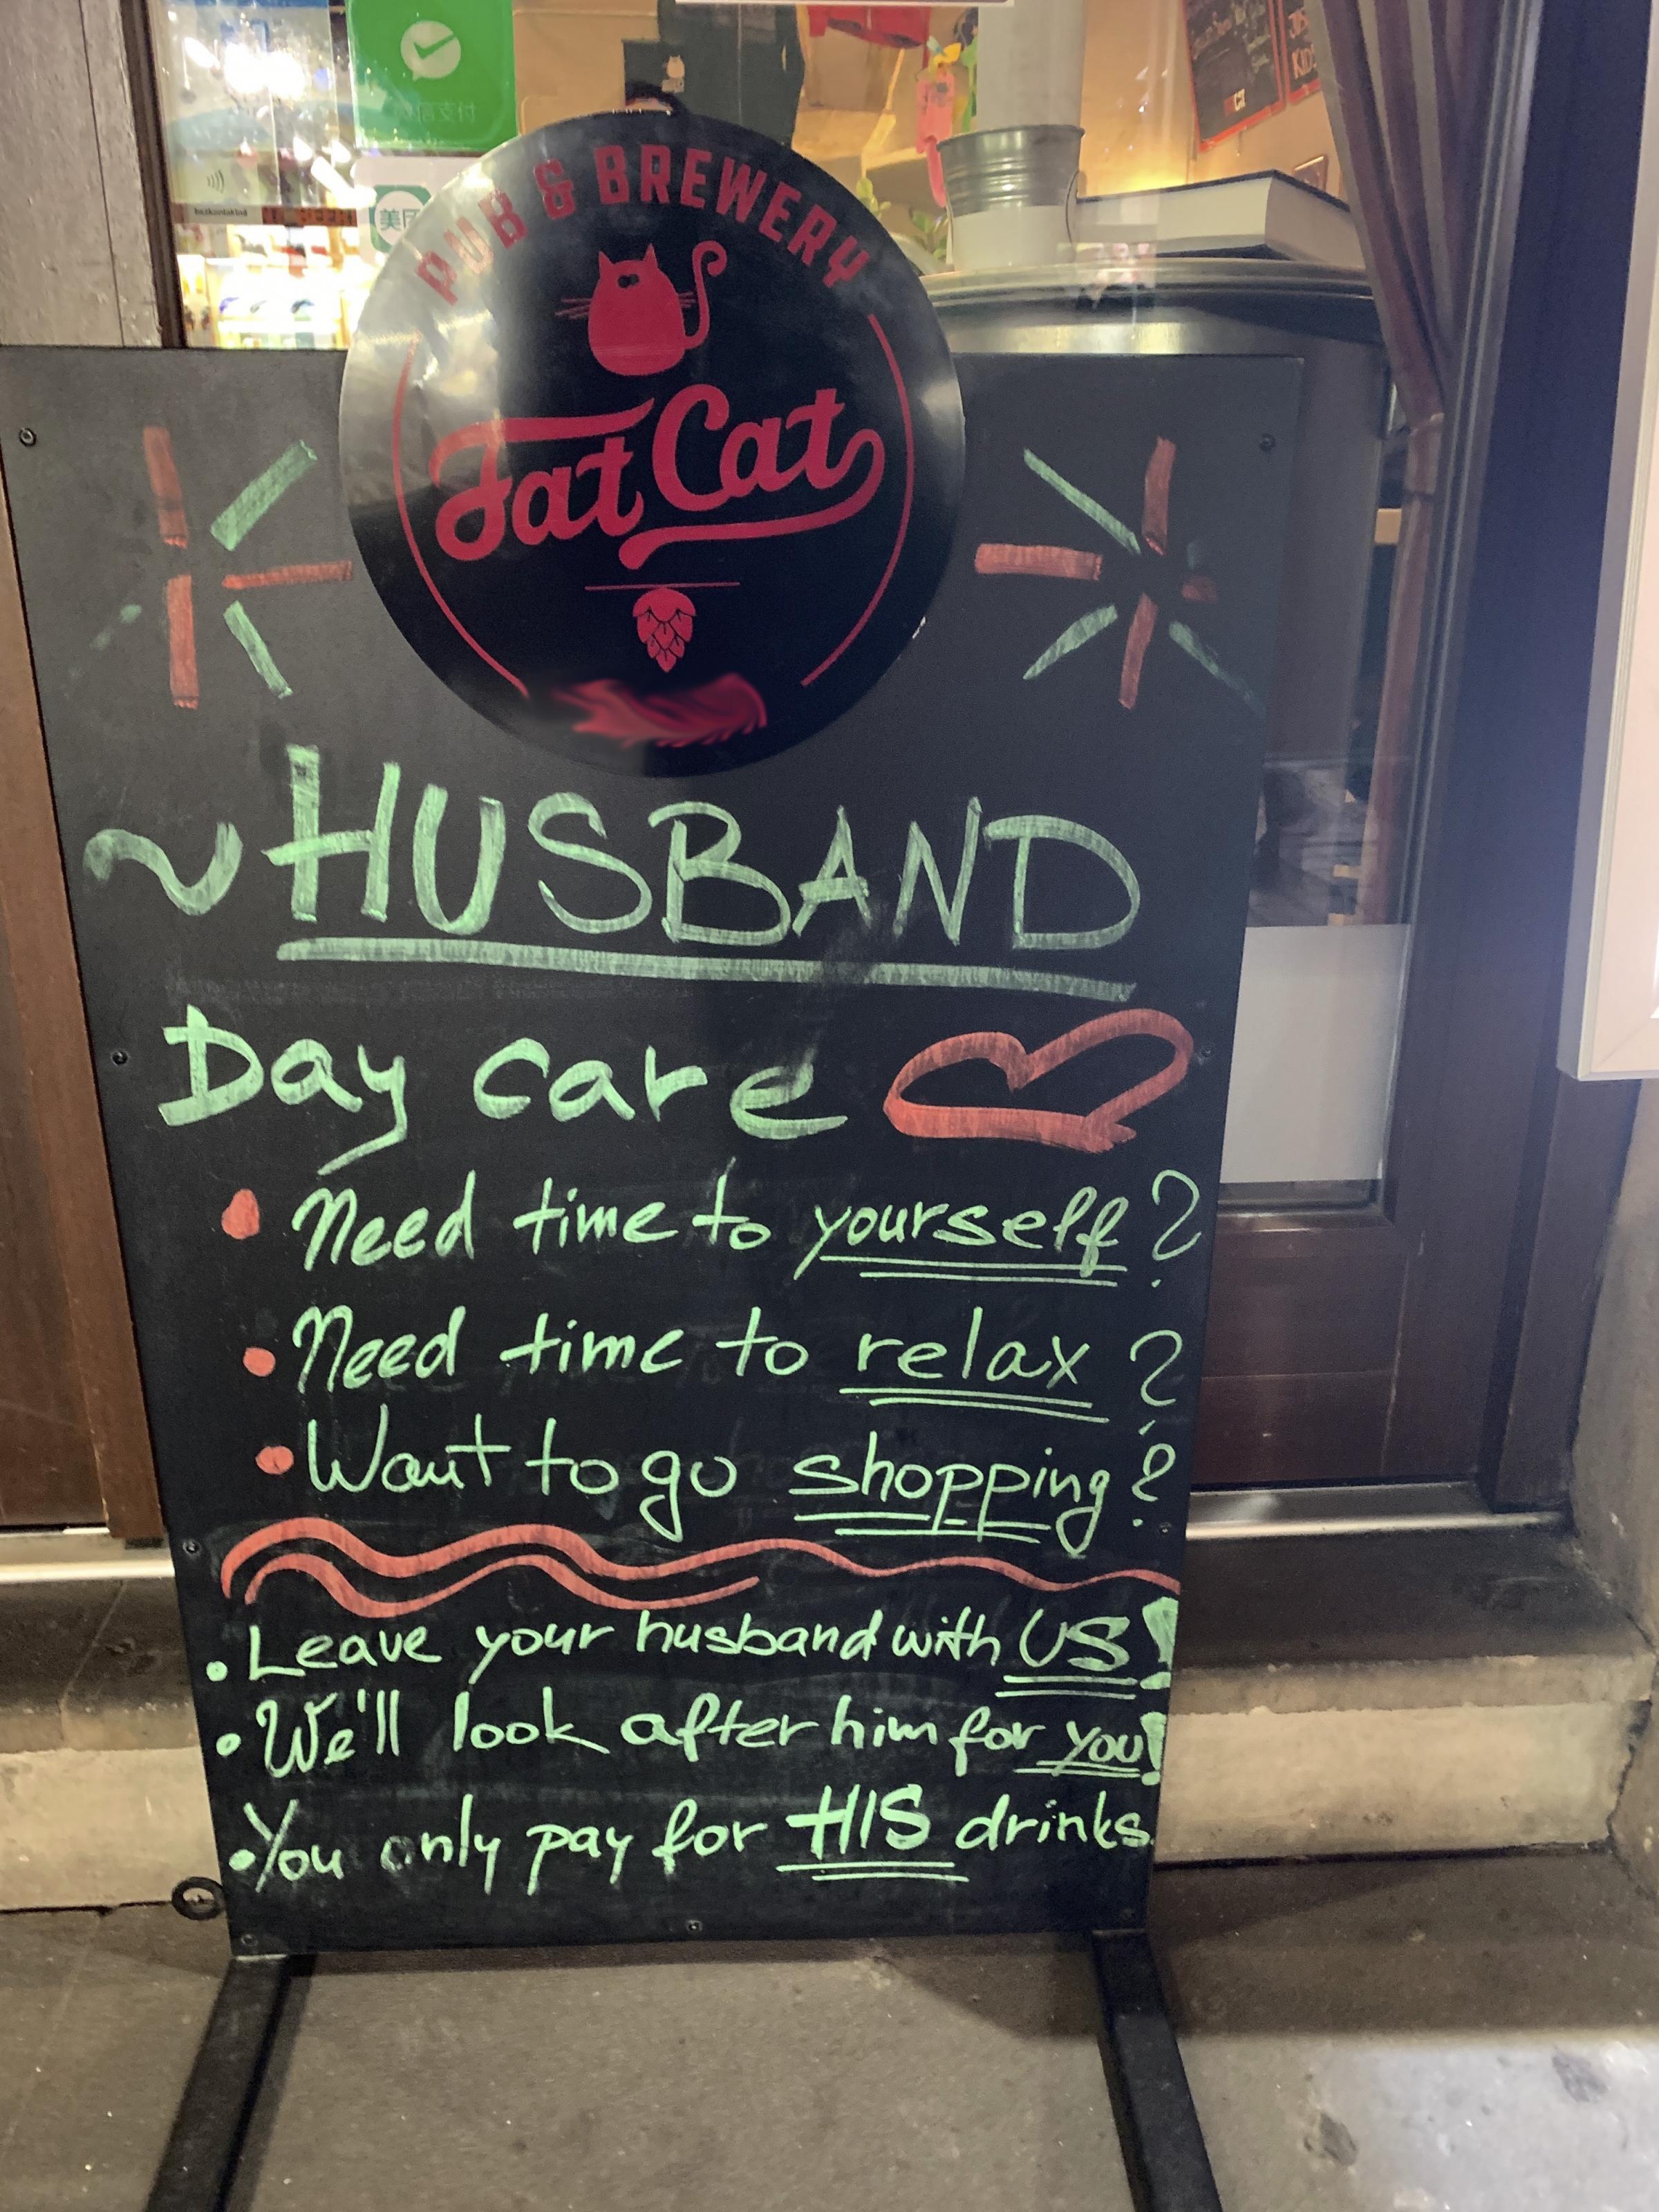 PUB & BREWERY
Fat Cat
~HUSBAND
Day care
Need time to yourself?
Need time to relax?
Want to go shopping?
Leave your husband with US!
We'll look after him for you!
You only pay for HIS drinks.